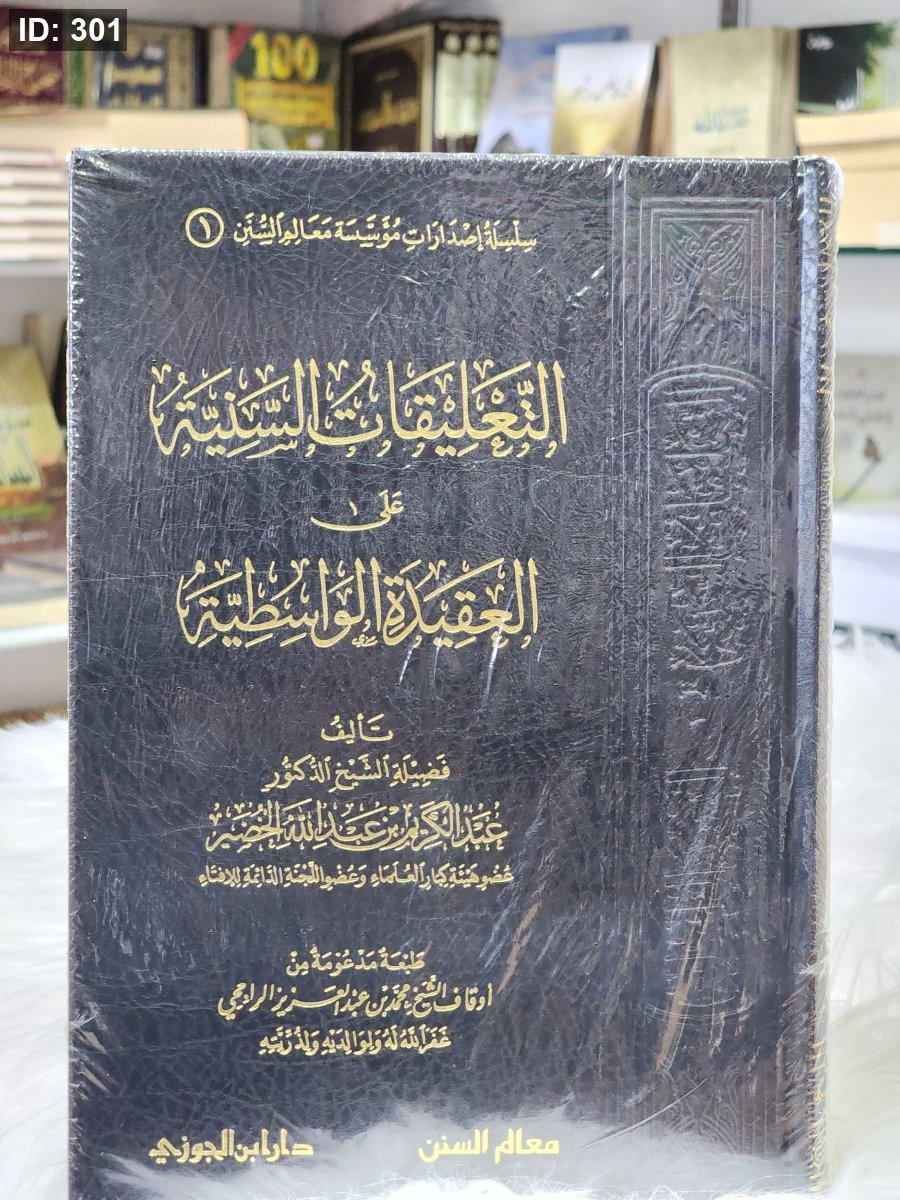 ID: 301
100
سِلْسِلَةُ إِصْدَارَاتِ مُؤَسَّسَة مَعَالِمِ السُّنَن ١
التَّعْلِيقَاتُ السَّنِيَّةُ
عَلَى
العَقِيدَةِ الوَاسِطِيَّةِ
تَأليفُ
فَضِيلَةِ الشَّيْخِ الدُّكتُورِ
عَبْدِ الكَرِيمِ بْنِ عَبْدِ اللَّهِ الخُضَيْرِ
عُضْوِ هَيْئَةِ كِبَارِ العُلَمَاءِ وَعُضْوِ اللَّجْنَةِ الدَّائِمَةِ لِلإِفْتَاءِ
طَبْعَةٌ مَدْعُومَةٌ مِنْ
أوقاف الشَّيْخِ مُحَمَّد بْن عَبْدِ العَزِيزِ الرَّاجحِي
غَفَرَ اللَّهُ لَهُ وَلِوَالِدَيْهِ وَلِذُرِّيَّتِهِ
معالم السنن
دار ابن الجوزي